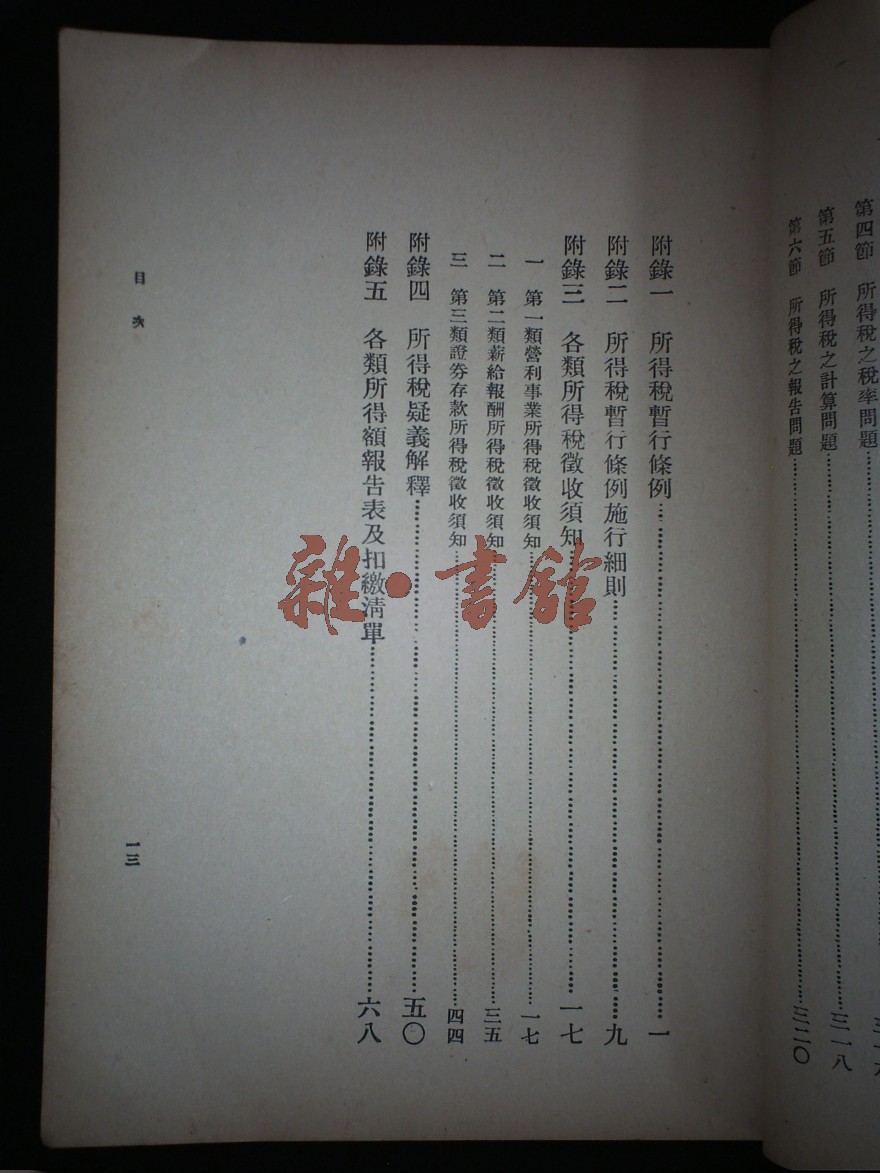 第四節　所得稅之稅率問題
第五節　所得稅之計算問題……三一八
第六節　所得稅之報告問題……三二〇
附錄一　所得稅暫行條例……一
附錄二　所得稅暫行條例施行細則……九
附錄三　各類所得稅徵收須知……一七
一　第一類營利事業所得稅徵收須知……一七
二　第二類薪給報酬所得稅徵收須知……三五
三　第三類證券存款所得稅徵收須知……四四
附錄四　所得稅疑義解釋……五〇
附錄五　各類所得額報告表及扣繳清單……六八
目次
一三
雜·書館